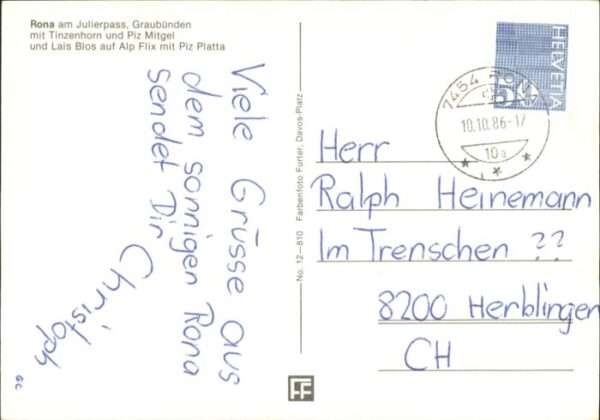 Rona am Julierpass, Graubünden
mit Tinzenhorn und Piz Mitgel
und Lais Blos auf Alp Flix mit Piz Platta
Viele Grüsse aus
dem sonnigen Rona
sendet Dir
Christoph
No. 12–810 Farbenfoto Furter, Davos-Platz
HELVETIA
50
7454 RONA
10.10.86-17
10a
Herr
Ralph Heinemann
Im Trenschen ??
8200 Herblingen
CH
FF